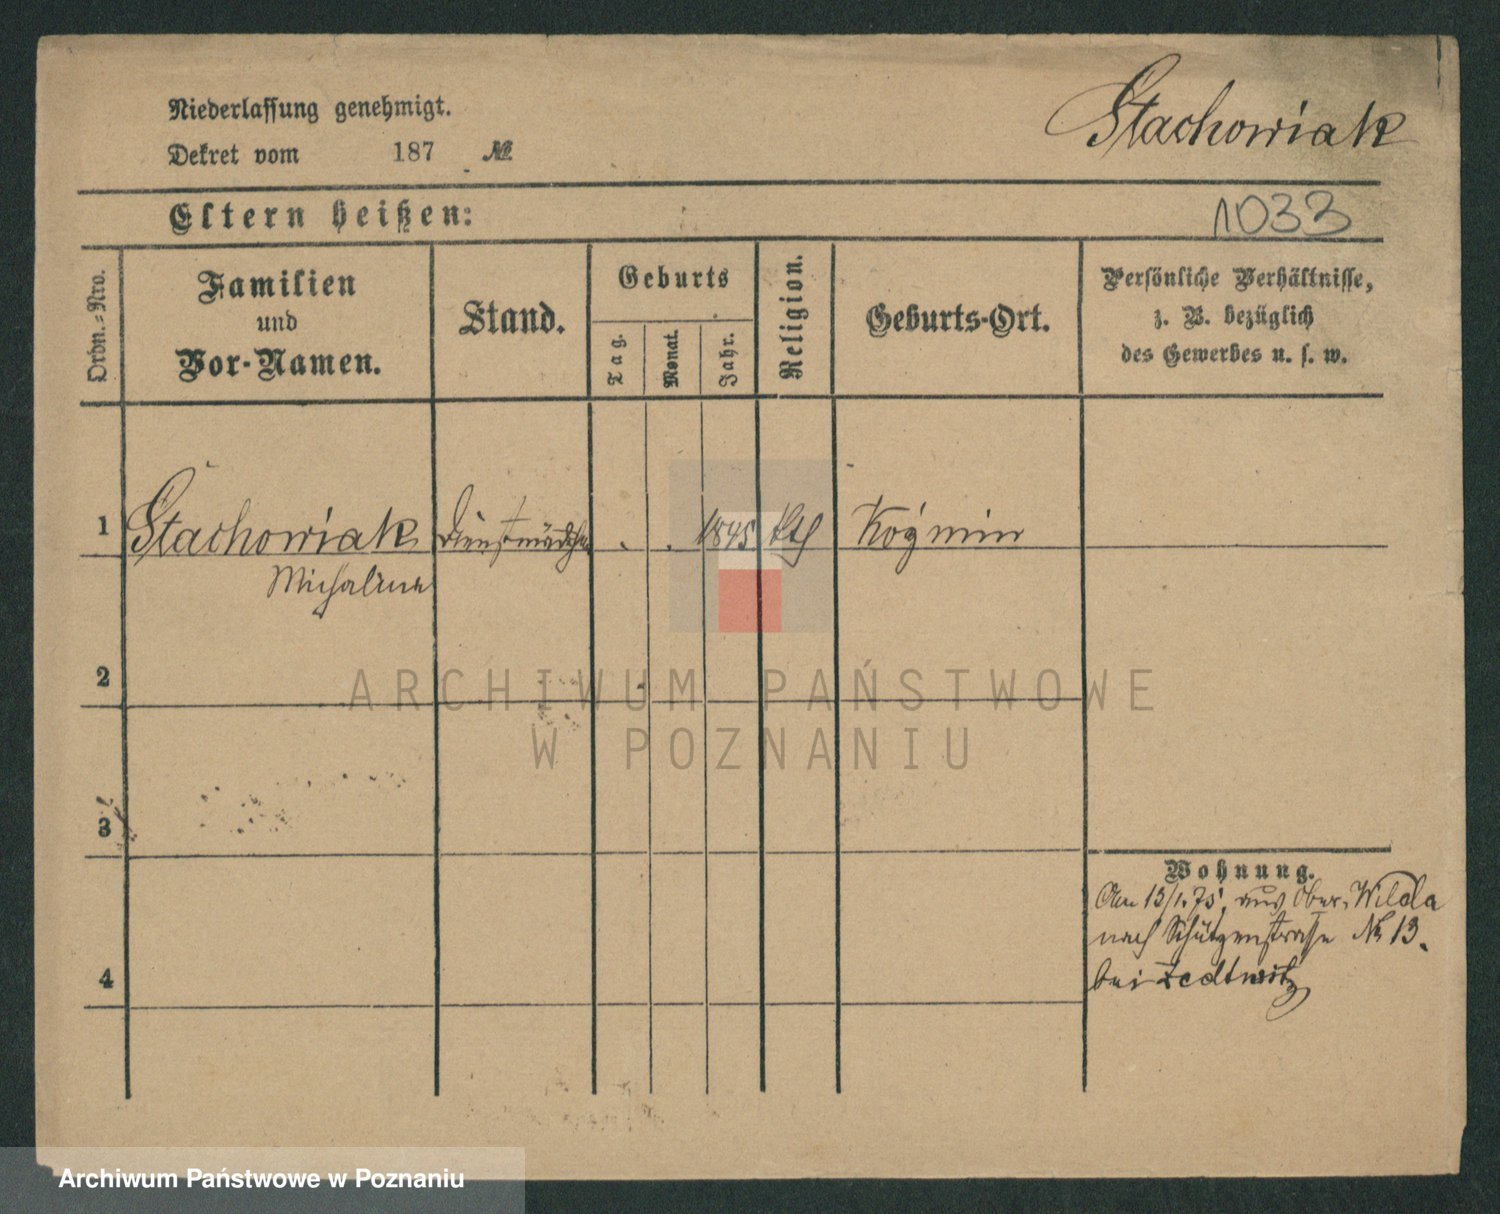 Niederlassung genehmigt.
Dekret vom 187 №
Stachowiak
Eltern heißen:
1033
Ordn.-Nro.
Familien
und
Vor-Namen.
Stand.
Geburts
Tag.
Monat.
Jahr.
Religion.
Geburts-Ort.
Persönliche Verhältnisse,
z. B. bezüglich
des Gewerbes u. s. w.
1 Stachowiak Dienstmädchen . . 1845 kth Kozmin
Michalina
2
ARCHIWUM PAŃSTWOWE
W POZNANIU
3
Wohnung.
Am 13/1.75, aus Ober-Wilda
nach Schützenstrasse № 13.
4
bei Zedtwitz
Archiwum Państwowe w Poznaniu